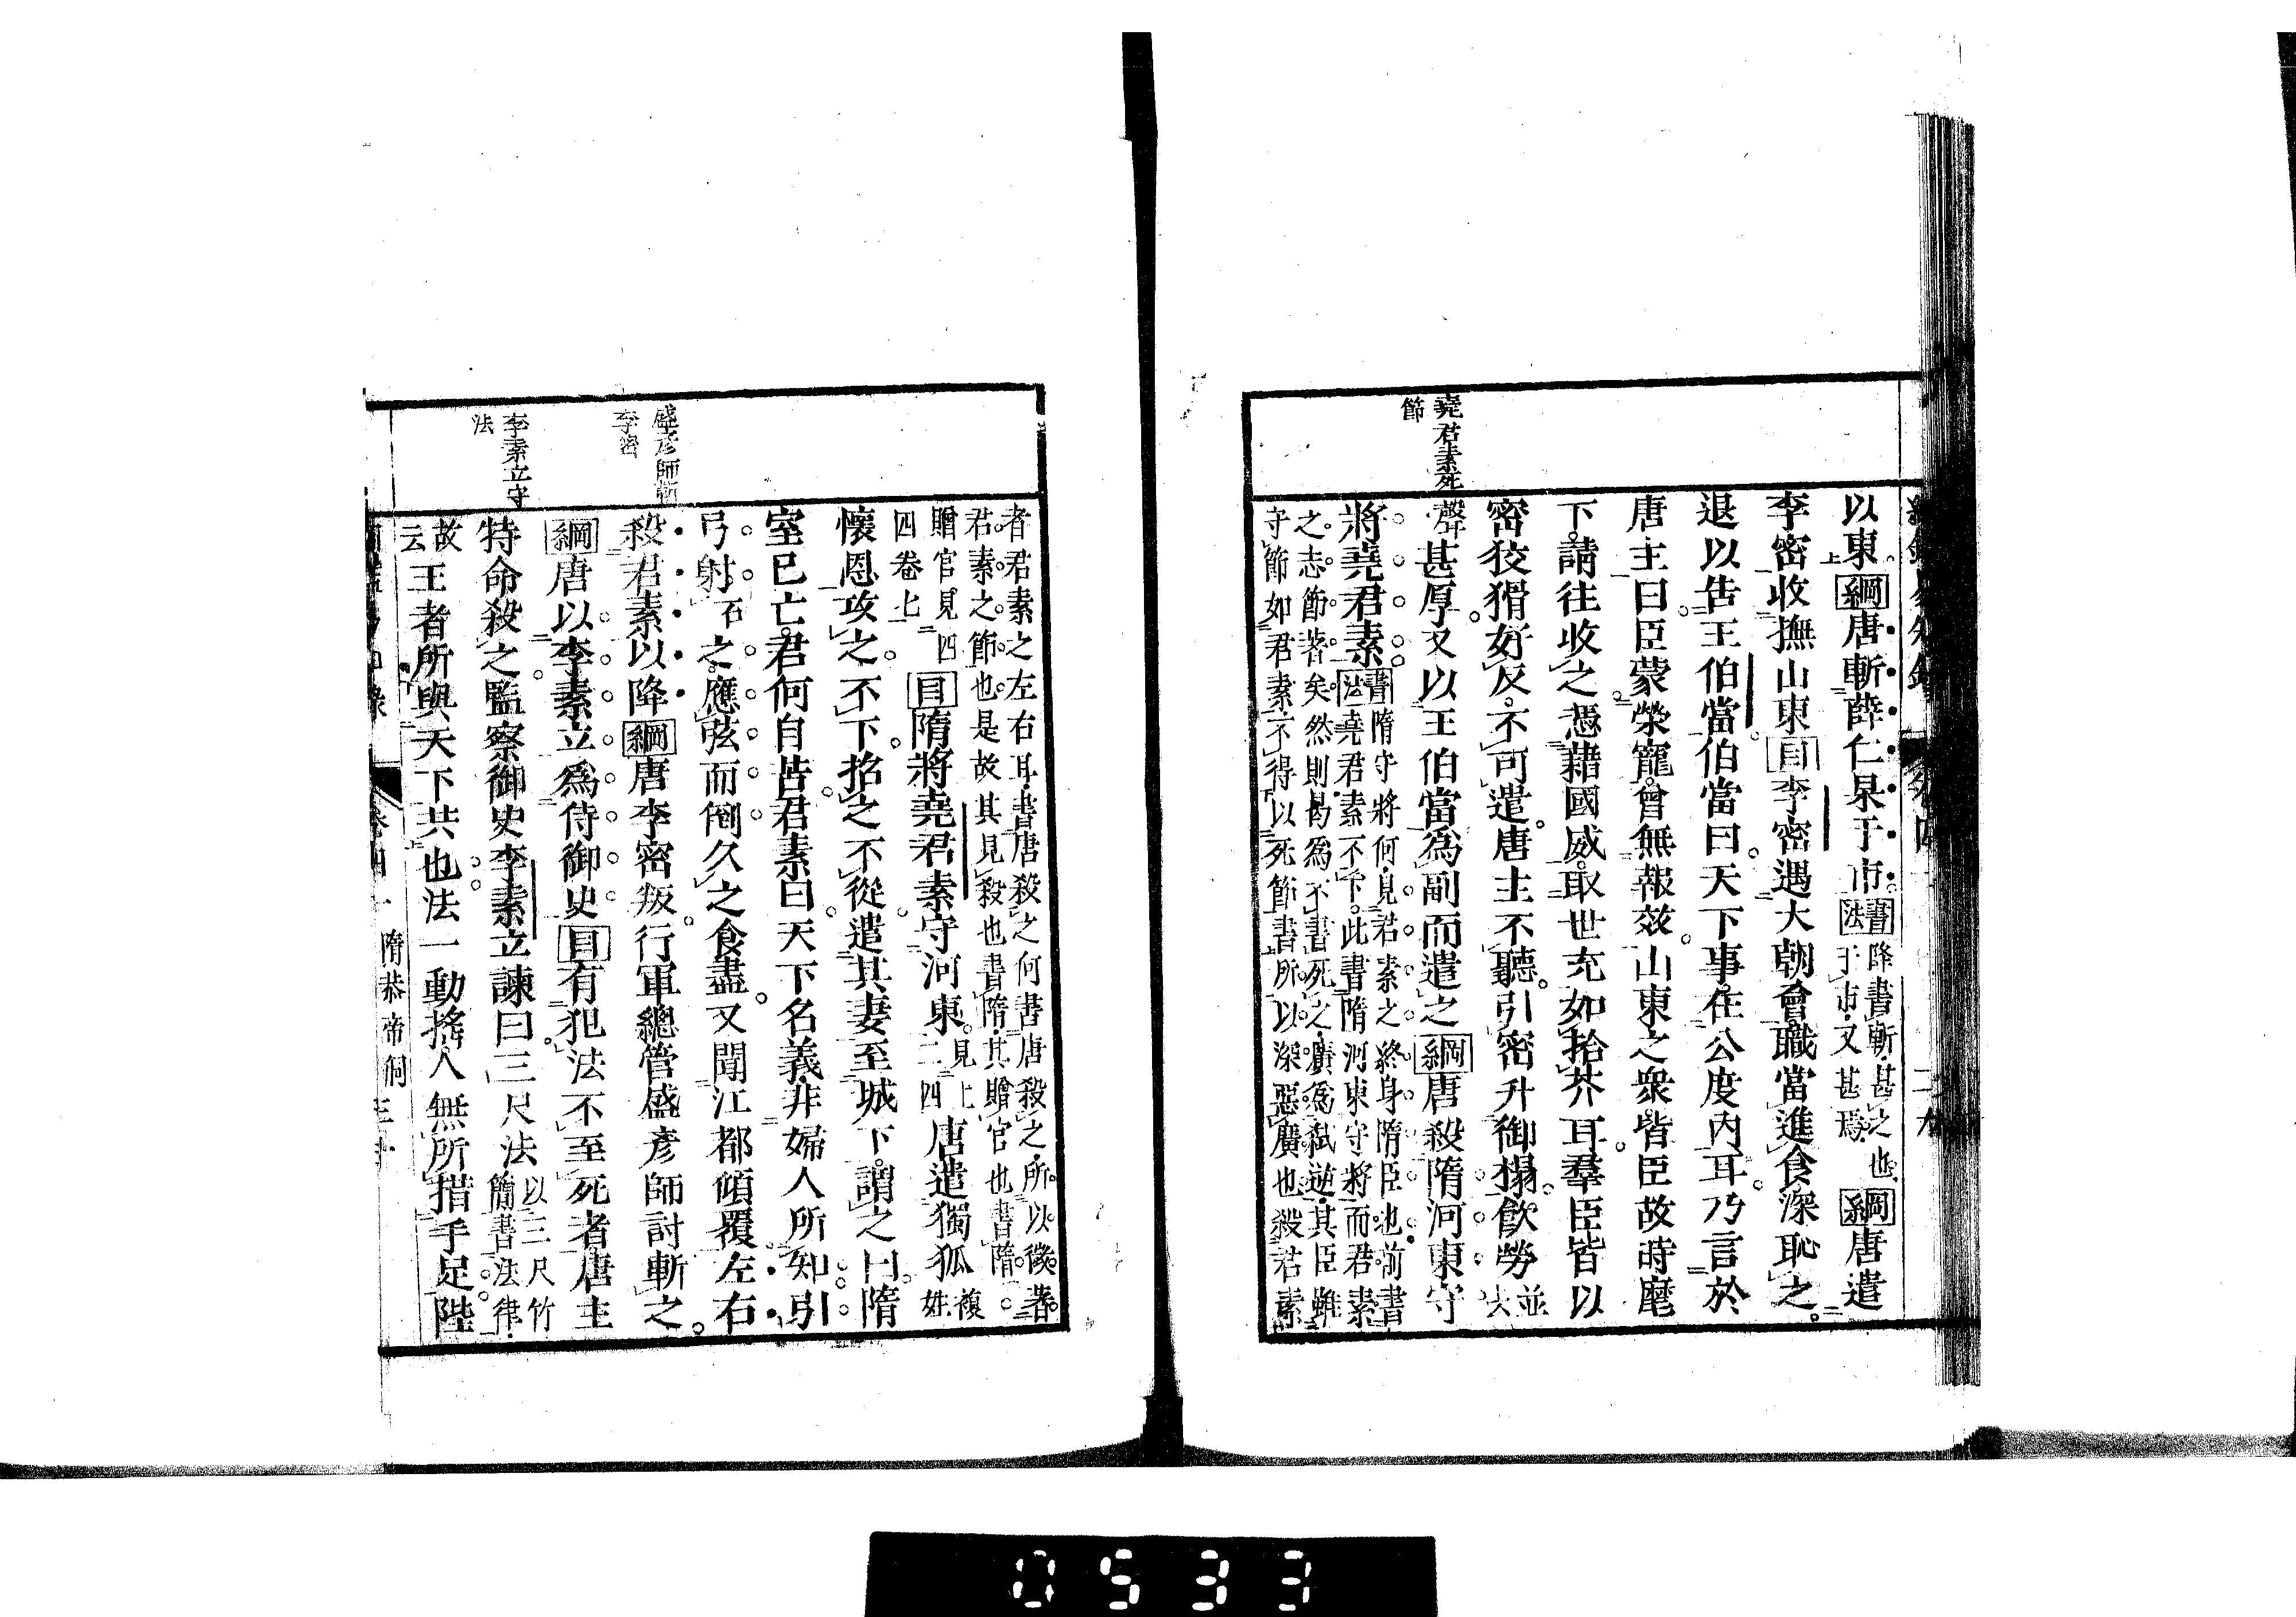 堯君素死
節
以東綱唐斬薛仁杲于市書法降書斬甚之也于市又甚焉綱唐遣
李密收撫山東目李密遇大朝會職當進食深恥之
退以告王伯當伯當曰天下事在公度內耳乃言於
唐主曰臣蒙榮寵曾無報效山東之衆皆臣故時麾
下請往收之憑藉國威取世充如拾芥耳羣臣皆以
密狡猾好反不可遣唐主不聽引密升御榻飲勞並去
聲甚厚又以王伯當爲副而遣之綱唐殺隋河東守
將堯君素書法隋守將何見君素之終身隋臣也前書堯君素不下此書隋河東守將而君素
之志節著矣然則曷爲不書死之廣爲弑逆其臣雖
守節如君素不得以死節書所以深惡廣也殺君素
盛彥師斬
李密
李素立守
法
者君素之左右耳書唐殺之何書唐殺之所以徵著
君素之節也是故其見殺也書隋其贈官也書隋
贈官見四四卷上目隋將堯君素守河東見上二四唐遣獨狐複姓
懷恩攻之不下招之不從遣其妻至城下謂之曰隋
室已亡君何自苦君素曰天下名義非婦人所知引
弓射石之應弦而倒久之食盡又聞江都傾覆左右
殺君素以降綱唐李密叛行軍總管盛彥師討斬之
綱唐以李素立爲侍御史目有犯法不至死者唐主
特命殺之監察御史李素立諫曰三尺法以三尺竹簡書法律
故云王者所與天下共也法一動搖人無所措手足陛
卷四一 隋恭帝侗
0533